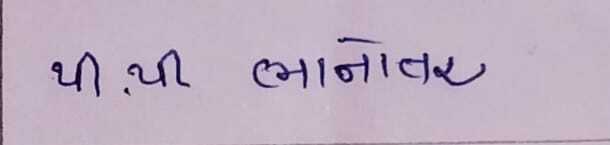 પી.પી ભાનોવર